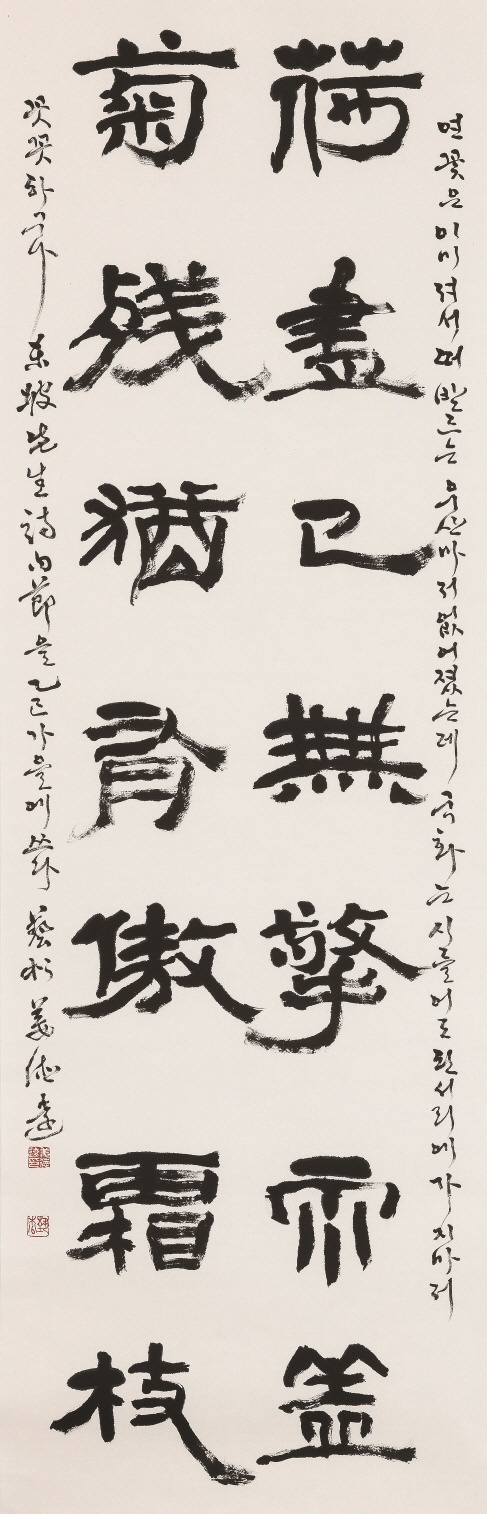 연꽃은 이미 져서 떠받드는 우산마저 없어졌는데 국화는 시들어도 된서리에 가지마저
荷盡已無擎雨蓋
菊殘猶有傲霜枝
꼿꼿하구나 東坡先生詩句節을 乙巳 가을에 쓰다 藝松 姜